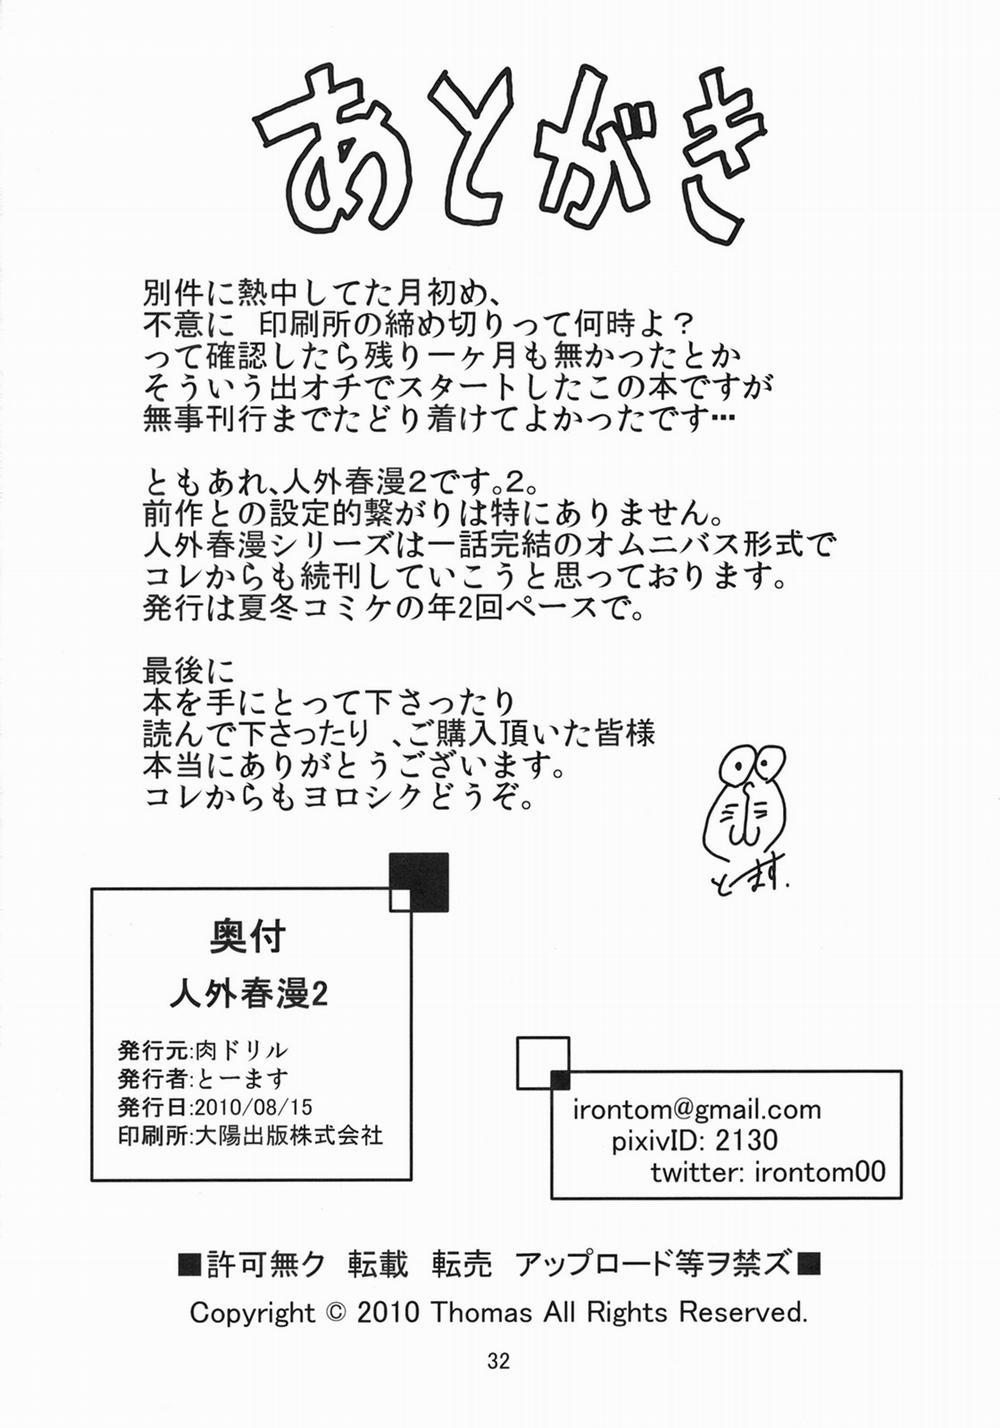 あとがき
別件に熱中してた月初め、
不意に 印刷所の締め切りって何時よ？
って確認したら残り一ヶ月も無かったとか
そういう出オチでスタートしたこの本ですが
無事刊行までたどり着けてよかったです…
ともあれ、人外春漫２です。２。
前作との設定的繋がりは特にありません。
人外春漫シリーズは一話完結のオムニバス形式で
コレからも続刊していこうと思っております。
発行は夏冬コミケの年2回ペースで。
最後に
本を手にとって下さったり
読んで下さったり 、ご購入頂いた皆様
本当にありがとうございます。
コレからもヨロシクどうぞ。
とーます.
奥付
人外春漫2
発行元:肉ドリル
発行者:とーます
発行日:2010/08/15
印刷所:大陽出版株式会社
irontom@gmail.com
pixivID: 2130
twitter: irontom00
■許可無ク 転載 転売 アップロード等ヲ禁ズ■
Copyright © 2010 Thomas All Rights Reserved.
32